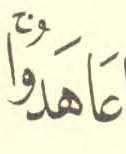 عَاهَدُواْ ۖ